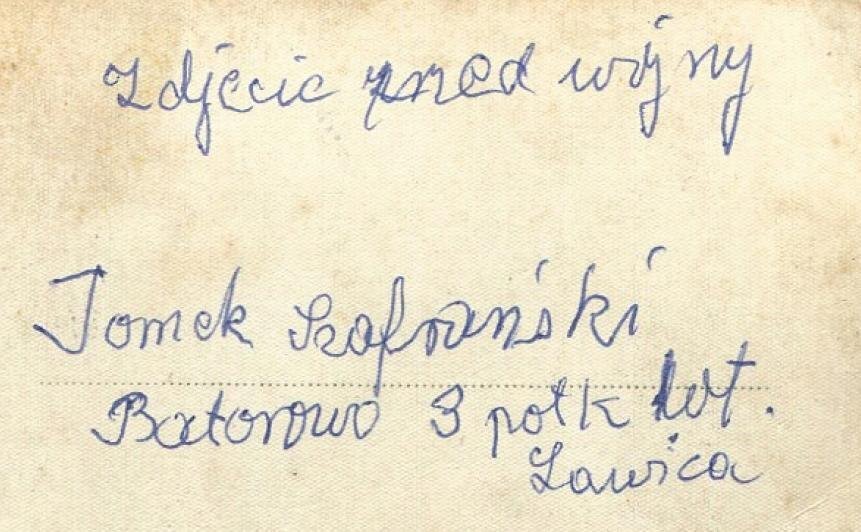 Zdjęcie przed wojny
Tomek Szafrański
Batorowo 3 połk lot.
Ławica